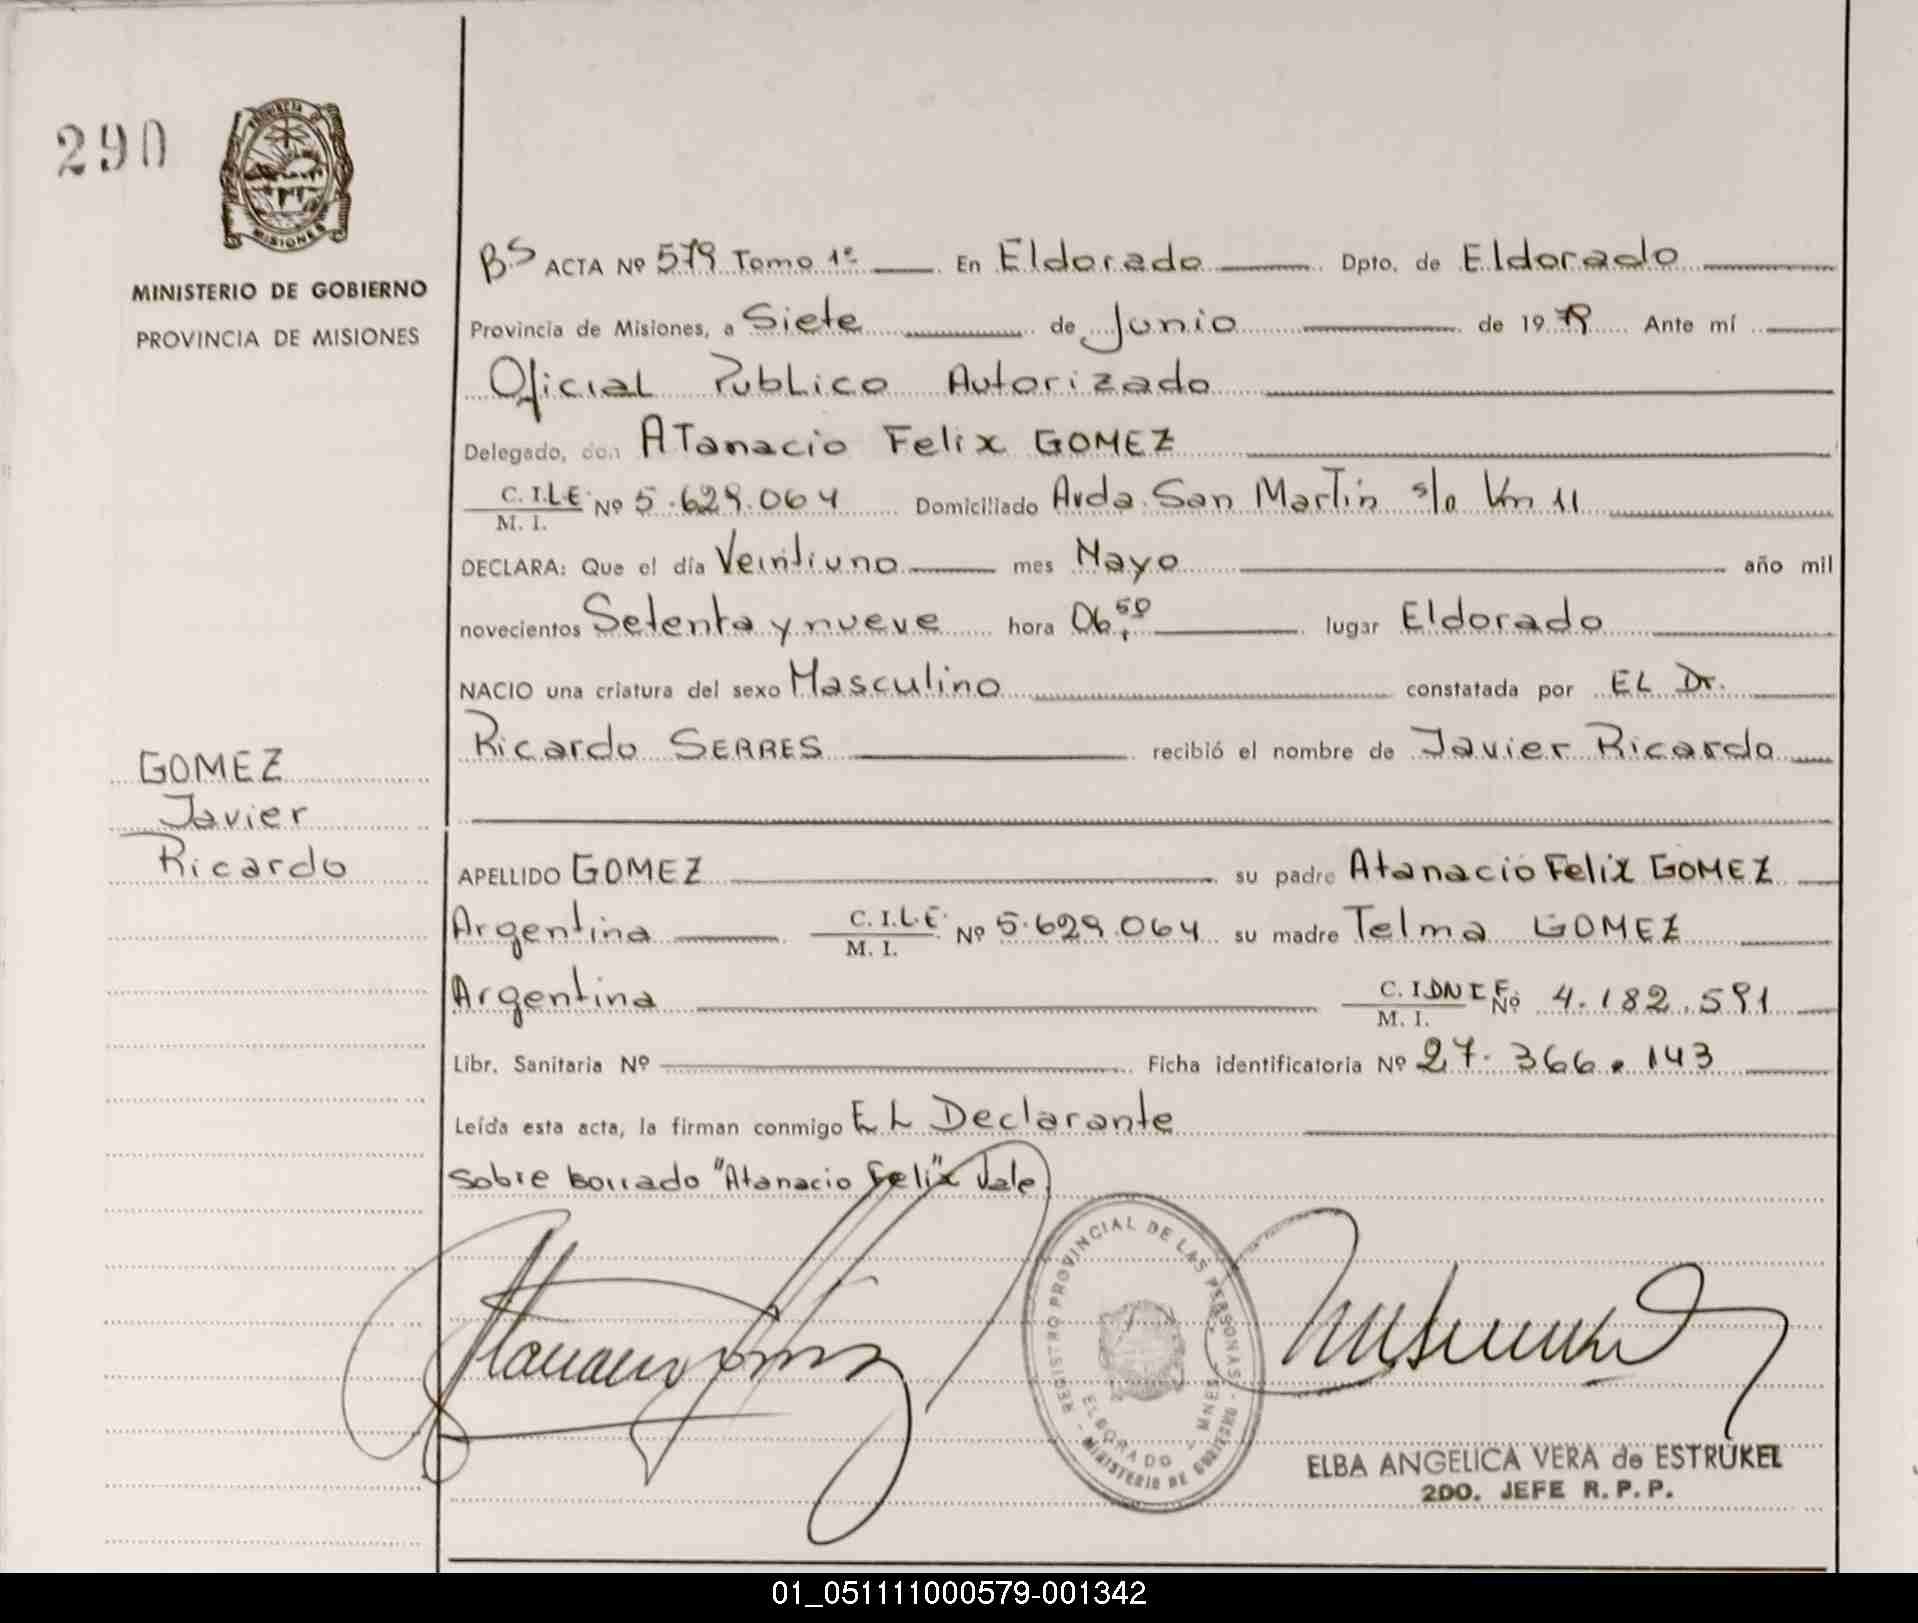 290
PROVINCIA DE
MISIONES
MINISTERIO DE GOBIERNO
PROVINCIA DE MISIONES
BS ACTA Nº 579 Tomo 1º En Eldorado Dpto. de Eldorado
Provincia de Misiones, a Siete de Junio de 1979 Ante mí
Oficial Publico Autorizado
Delegado, don ATanacio Felix GOMEZ
C. I. L.E. Nº 5.629.064 Domiciliado Avda. San Martin s/n Km 11
M. I.
DECLARA: Que el día Veintiuno mes Mayo año mil
novecientos Setenta y nueve hora 06,50 lugar Eldorado
NACIO una criatura del sexo Masculino constatada por EL Dr.
Ricardo SERRES recibió el nombre de Javier Ricardo
GOMEZ
Javier
Ricardo
APELLIDO GOMEZ su padre Atanacio Felix GOMEZ
Argentina C. I. L.E. Nº 5.629.064 su madre Telma GOMEZ
M. I.
Argentina C. I. DNI F. Nº 4.182.591
M. I.
Libr. Sanitaria Nº Ficha identificatoria Nº 27.366.143
Leída esta acta, la firman conmigo EL Declarante
Sobre borrado "Atanacio Felix" Vale
REGISTRO PROVINCIAL DE LAS PERSONAS
ELDORADO - MNES
MINISTERIO DE GOBIERNO
ELBA ANGELICA VERA de ESTRUKEL
2DO. JEFE R. P. P.
01_051111000579-001342